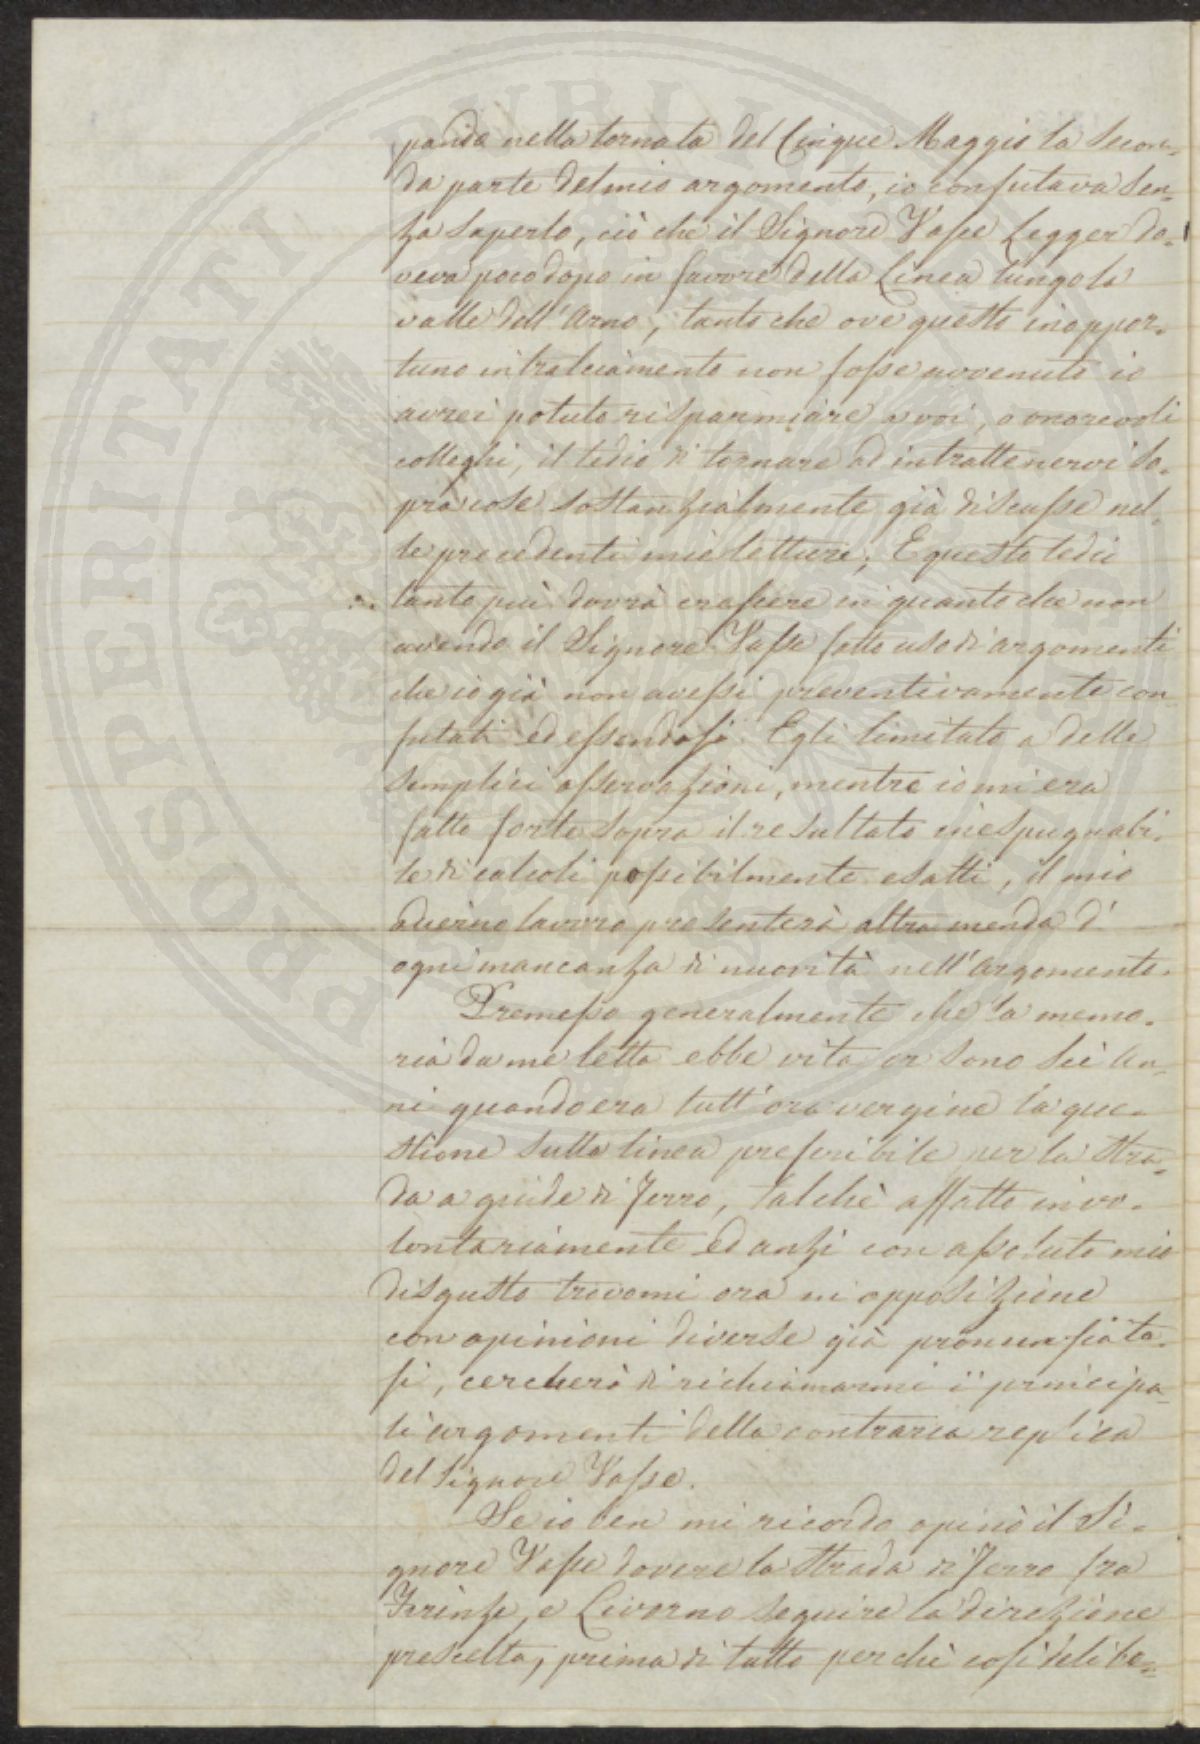 pando nella tornata del Cinque Maggio la secon-
da parte del mio argomento, io confutava sen-
za saperlo, ciò che il Signore Vasse Legger do-
veva poco dopo in favore della Linea lungo la
valle dell'Arno, tanto che ove questo inoppor-
tuno intralciamento non fosse avvenuto io
avrei potuto risparmiare a voi, o onorevoli
colleghi, il tedio di tornare ad intrattenervi so-
pra cose sostanzialmente già discusse nel-
le precedenti mie letture; E questo tedio
tanto più dovrà crescere in quanto che non
avendo il Signore Vasse fatto uso di argomenti
che io già non avessi preventivamente con-
futati ed essendosi Egli limitato a delle
semplici osservazioni, mentre io mi era
fatto forte sopra il resultato inespugnabi-
le di calcoli possibilmente esatti, il mio
odierno lavoro presenterà altra menda d'
ogni mancanza di nuovità nell'argomento.
Premesso generalmente che la memo-
ria da me letta ebbe vita or sono sei An-
ni quando era tutt'ora vergine la que-
stione sulla linea preferibile per la stra-
da a guide di Ferro, talchè affatto invo-
lontariamente ed anzi con assoluto mio
disgusto trovomi ora in opposizione
con opinioni diverse già pronunziate-
si, cercherò di richiamarmi i principa-
li argomenti della contraria replica
del Signore Vasse.
Se io ben mi ricordo opinò il Si-
gnore Vasse dovere la strada di Ferro fra
Firenze, e Livorno seguire la direzione
prescelta, prima di tutto perchè così delibe-
PROSPERITATI PUBLICAE